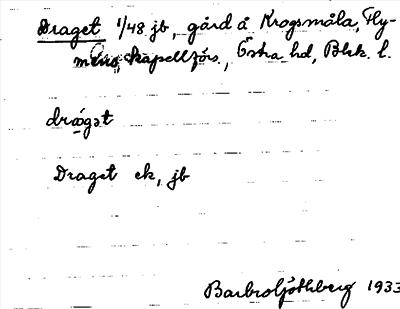 Draget 1/48 jb, gård å Krogsmåla, Fly-
mens kapellförs., Östra hd, Blek. l.
drágət
Draget ek, jb
Barbro Ljothberg 1933